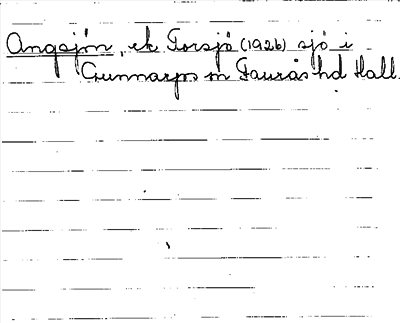 Angsjön, ek Forsjö (1926) sjö i
Gunnarps sn Faurås hd Hall.